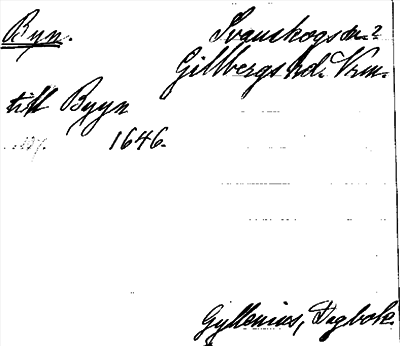 Byn.
Svanskogs sn.?
Gillbergs hd. Vrm.
till Byyn
1646.
Gyllenius, Dagbok.